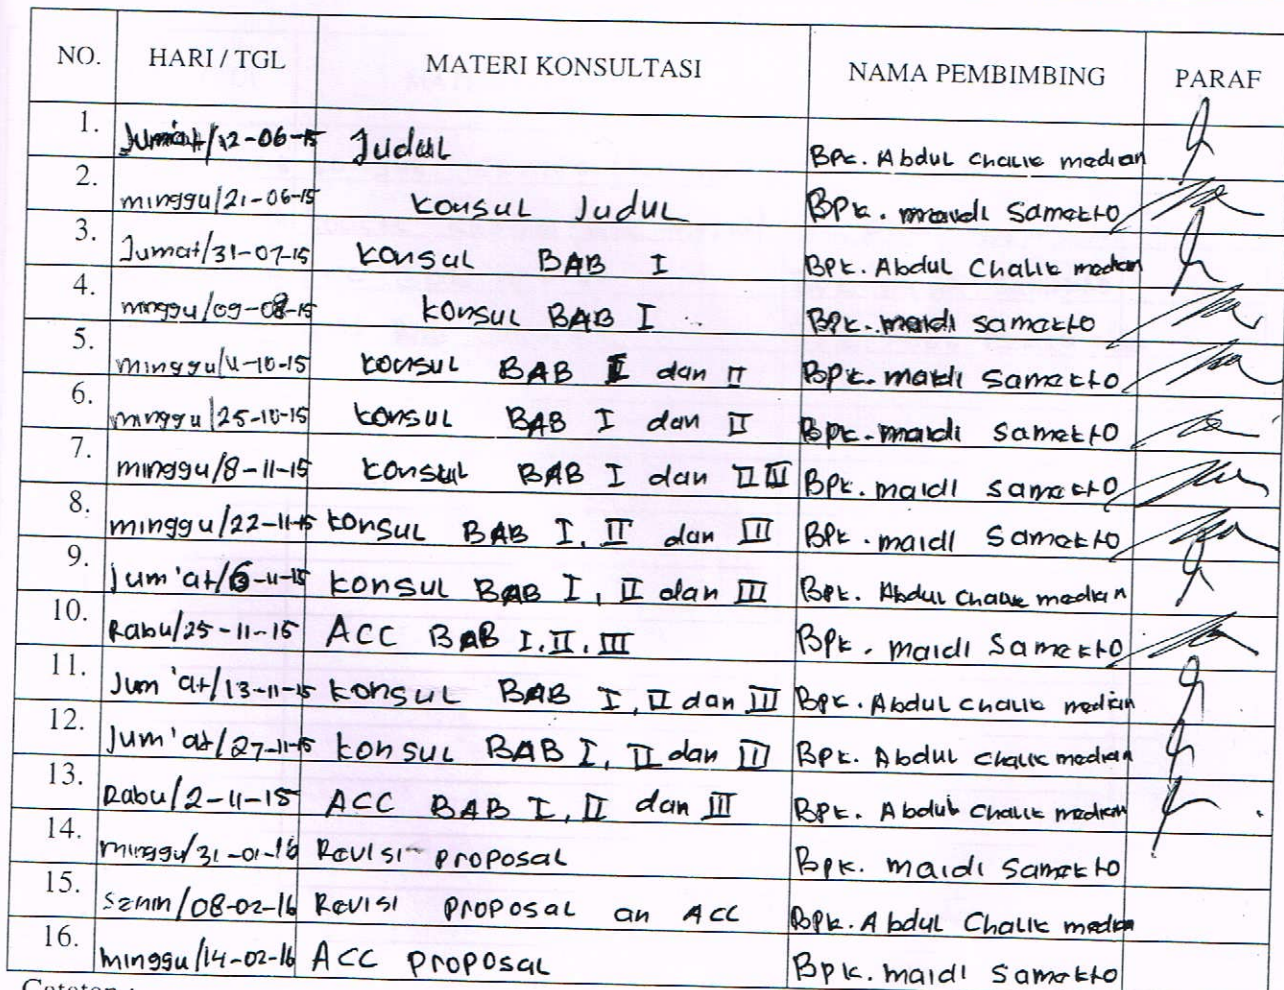 NO. HARI / TGL MATERI KONSULTASI NAMA PEMBIMBING PARAF
1. Jumat/12-06-15 Judul Bpk. Abdul Chalik median
2. minggu/21-06-15 konsul Judul Bpk. maidi Samekto
3. Jumat/31-07-15 konsul BAB I Bpk. Abdul Chalik median
4. minggu/09-08-15 konsul BAB I Bpk. maidi samekto
5. minggu/11-10-15 konsul BAB I dan II Bpk. maidi Samekto
6. minggu/25-10-15 konsul BAB I dan II Bpk. maidi samekto
7. minggu/8-11-15 konsul BAB I dan II Bpk. maidi samekto
8. minggu/22-11-15 konsul BAB I, II dan III Bpk. maidi Samekto
9. jum'at/6-11-15 konsul BAB I, II dan III Bpk. Abdul Chalik median
10. Rabu/25-11-15 ACC BAB I.II.III Bpk. maidi Samekto
11. Jum'at/13-11-15 konsul BAB I, II dan III Bpk. Abdul Chalik median
12. Jum'at/27-11-15 konsul BAB I, II dan III Bpk. Abdul Chalik median
13. Rabu/2-11-15 ACC BAB I, II dan III Bpk. Abdul Chalik median
14. minggu/31-01-16 Revisi proposal Bpk. maidi Samekto
15. Senin/08-02-16 Revisi proposal an ACC Bpk. Abdul Chalik median
16. minggu/14-02-16 ACC proposal Bpk. maidi Samekto
Catatan :